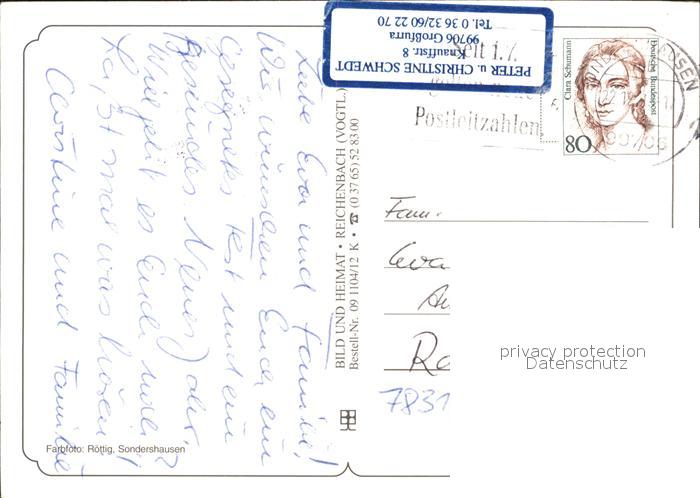 Liebe Eva und Familie!
Wir wünschen Euch ein
Gesegnetes Fest und ein
Gesundes Neues Jahr.
Wie geht es Euch
Laßt mal was hören!
Christine und Familie
PETER u. CHRISTINE SCHWEDT
Knauffstr. 8
99706 Großfurra
Tel. 0 36 32/60 22 70
BILD UND HEIMAT • REICHENBACH (VOGTL.)
Bestell-Nr. 09 1104/12 K • ☎ (0 37 65) 52 83 00
Seit 1.7.
Postleitzahlen
Clara Schumann
Deutsche Bundespost
80
99706
Fam.
Eva
7831
privacy protection
Datenschutz
Farbfoto: Röttig, Sondershausen